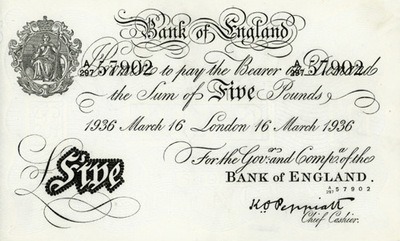 Bank of England
A/297 57902 A/297 57902
Promise to pay the Bearer on Demand
the Sum of Five Pounds
1936 March 16 London 16 March 1936
For the Gov:r and Comp:a of the
BANK OF ENGLAND.
A/297 57902
£Five
K.O. Peppiatt
Chief Cashier.